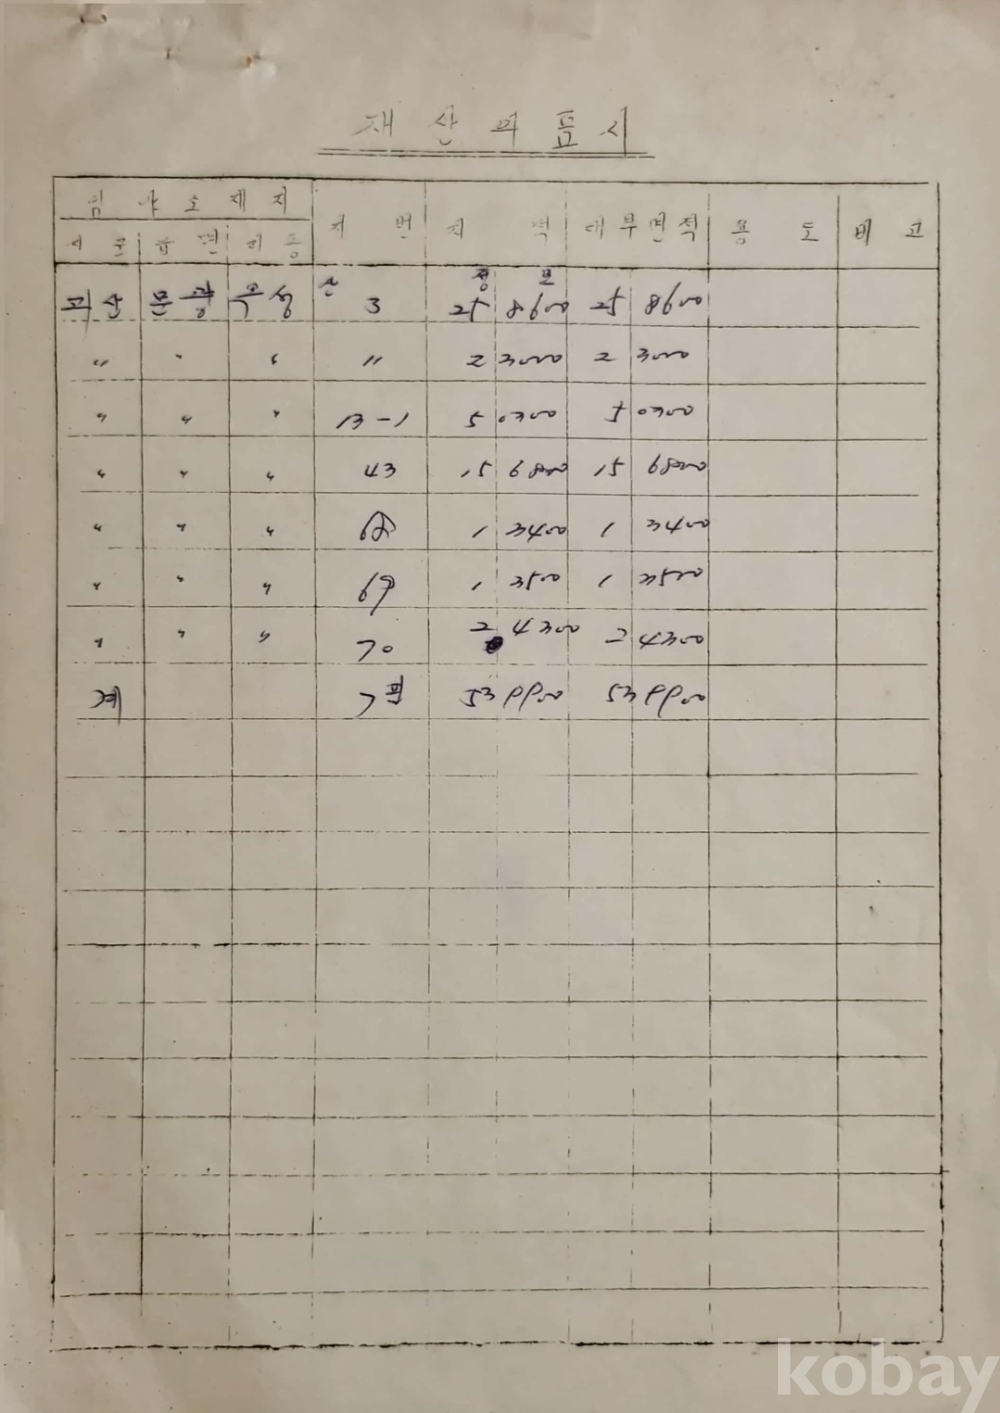 재산의표시
임야소재지 지번 지적 대부면적 용도 비고
시군 읍면 리동
정 보
괴산 문광 옥성 산 3 25 8600 25 8600
" " " 11 2 3000 2 3000
" " " 13-1 5 0300 5 0300
" " " 43 15 6800 15 6800
" " " 68 1 3400 1 3400
" " " 69 1 3500 1 3500
" " " 70 2 4300 2 4300
계 7필 53 9900 53 9900
kobay